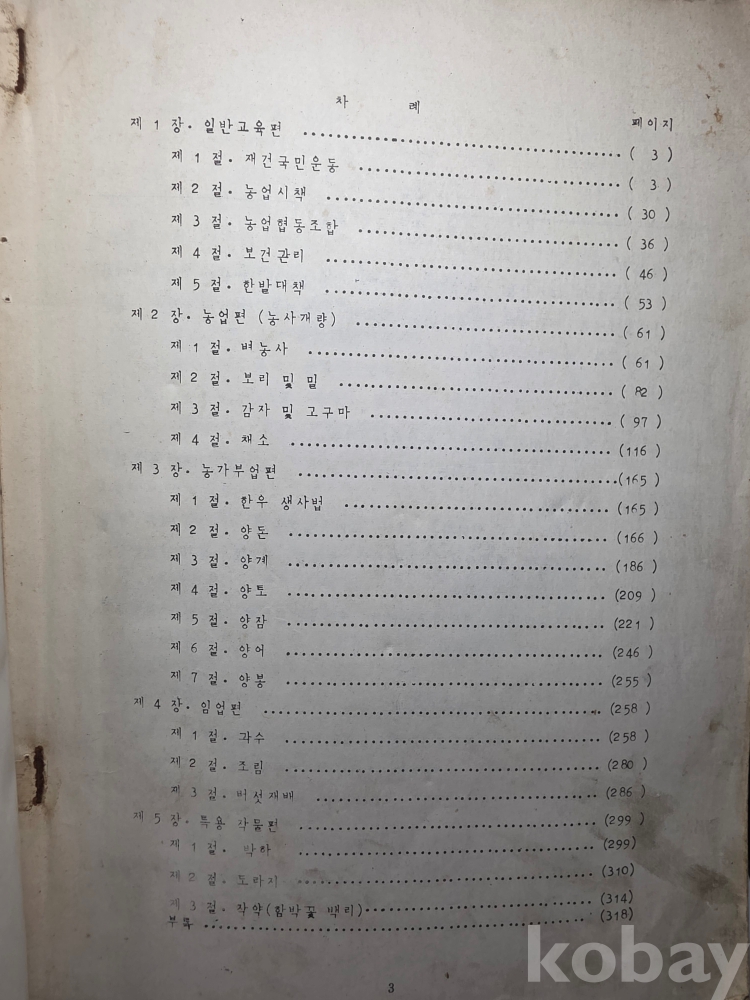 차 례
제 1 장. 일반교육편 (3)
페이지
제 1 절. 재건국민운동 (3)
제 2 절. 농업시책 (30)
제 3 절. 농업협동조합 (36)
제 4 절. 보건관리 (46)
제 5 절. 한발대책 (53)
제 2 장. 농업편 (농사개량) (61)
제 1 절. 벼농사 (61)
제 2 절. 보리 및 밀 (82)
제 3 절. 감자 및 고구마 (97)
제 4 절. 채소 (116)
제 3 장. 농가부업편 (165)
제 1 절. 한우 생사법 (165)
제 2 절. 양돈 (166)
제 3 절. 양계 (186)
제 4 절. 양토 (209)
제 5 절. 양잠 (221)
제 6 절. 양어 (246)
제 7 절. 양봉 (255)
제 4 장. 임업편 (258)
제 1 절. 각수 (258)
제 2 절. 조림 (280)
제 3 절. 버섯재배 (286)
제 5 장. 특용 각물편 (299)
제 1 절. 박하 (299)
제 2 절. 도라지 (310)
제 3 절. 작약(함박꽃 백리) (314)
부록 (318)
3
kobay